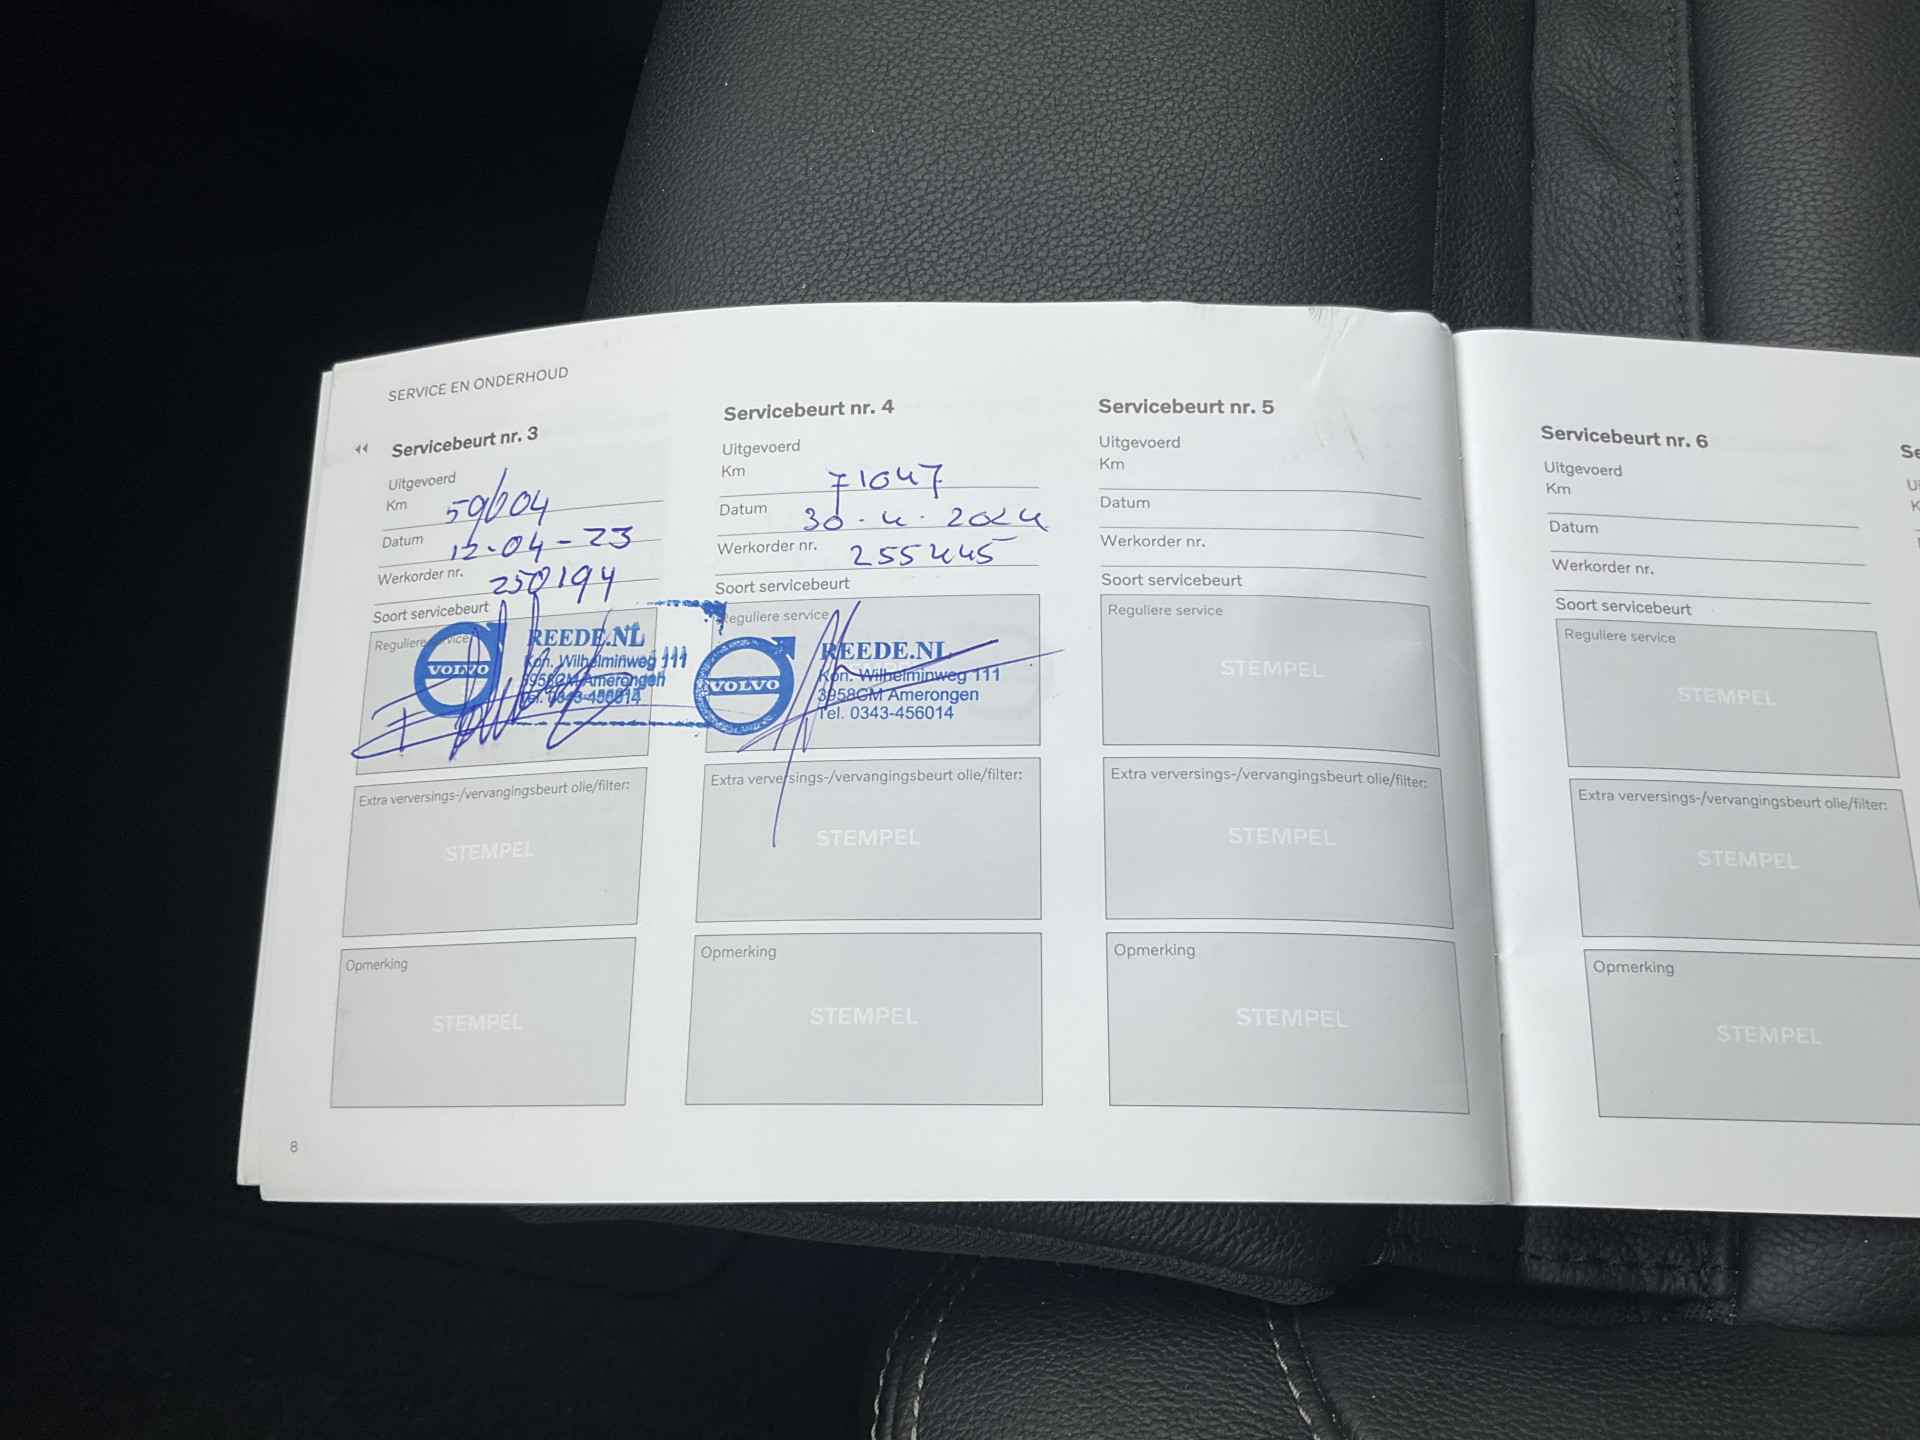 SERVICE EN ONDERHOUD
Servicebeurt nr. 3
Uitgevoerd
Km 59004
Datum 12-04-23
Werkorder nr. 250194
Soort servicebeurt
Reguliere service
VOLVO
REEDE.NL
Kon. Wilhelminweg 111
3958GM Amerongen
Tel. 0343-456014
Extra verversings-/vervangingsbeurt olie/filter:
STEMPEL
Opmerking
STEMPEL
8
Servicebeurt nr. 4
Uitgevoerd
Km 71047
Datum 30.4.2024
Werkorder nr. 255445
Soort servicebeurt
Reguliere service
VOLVO
REEDE.NL
Kon. Wilhelminweg 111
3958GM Amerongen
Tel. 0343-456014
Extra verversings-/vervangingsbeurt olie/filter:
STEMPEL
Opmerking
STEMPEL
Servicebeurt nr. 5
Uitgevoerd
Km
Datum
Werkorder nr.
Soort servicebeurt
Reguliere service
STEMPEL
Extra verversings-/vervangingsbeurt olie/filter:
STEMPEL
Opmerking
STEMPEL
Servicebeurt nr. 6
Uitgevoerd
Km
Datum
Werkorder nr.
Soort servicebeurt
Reguliere service
STEMPEL
Extra verversings-/vervangingsbeurt olie/filter:
STEMPEL
Opmerking
STEMPEL